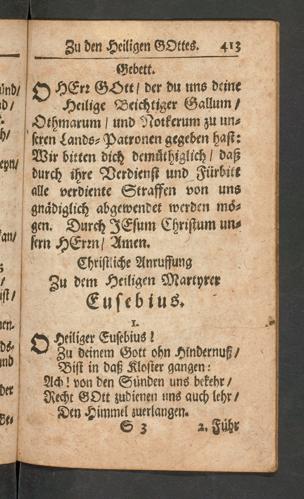 Zu den Heiligen GOttes. 413
Gebett.
O HErr GOtt / der du uns deine
Heilige Beichtiger Gallum /
Othmarum / und Notkerum zu un-
seren Lands-Patronen gegeben hast:
Wir bitten dich demüthiglich / daß
durch ihre Verdienst und Fürbitt
alle verdiente Straffen von uns
gnädiglich abgewendet werden mö-
gen. Durch JEsum Christum un-
sern HErrn / Amen.
Christliche Anruffung
Zu dem Heiligen Martyrer
Eusebius.
1.
O Heiliger Eusebius!
Zu deinem Gott ohn Hindernuß /
Bist in daß Kloster gangen:
Ach! von den Sünden uns bekehr /
Recht GOtt zudienen uns auch lehr /
Den Himmel zuerlangen.
S 3 2. Führ